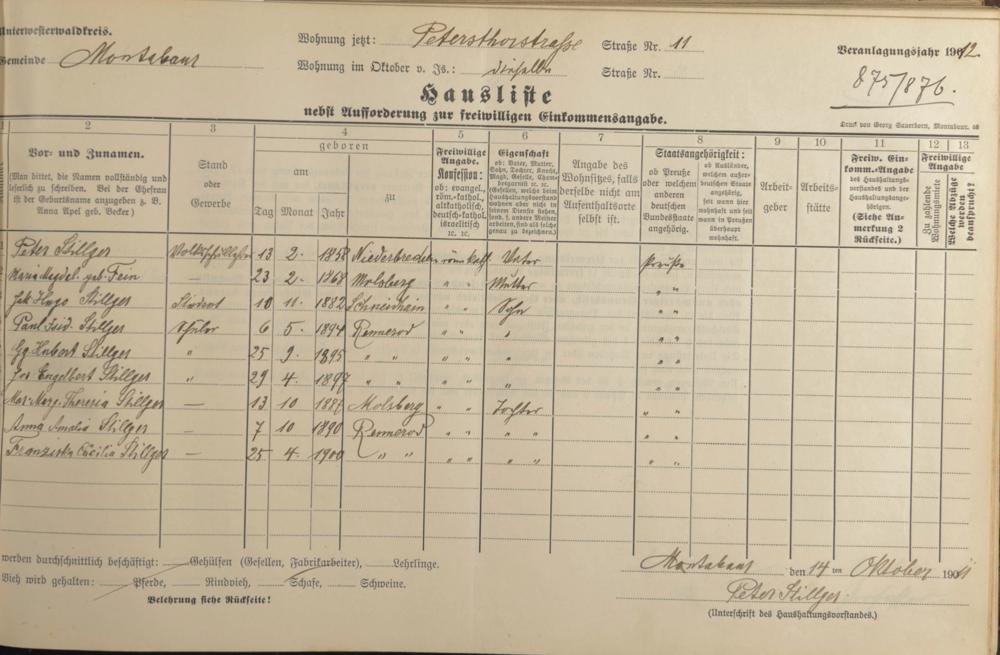 Unterwesterwaldkreis.
Gemeinde Montabaur
Wohnung jetzt: Petersthorstraße Straße Nr. 11
Wohnung im Oktober v. Js.: dieselbe Straße Nr.
Veranlagungsjahr 1912.
875/876.
Hausliste
nebst Aufforderung zur freiwilligen Einkommensangabe.
Druck von Georg Sauerborn, Montabaur.
2 3 4 5 6 7 8 9 10 11 12 13
Vor- und Zunamen.
(Man bittet, die Namen vollständig und
leserlich zu schreiben. Bei der Ehefrau
ist der Geburtsname anzugeben z. B.
Anna Apel geb. Becker.)
Stand
oder
Gewerbe
geboren
am
Tag Monat Jahr
zu
Freiwillige
Angabe.
Konfession:
ob: evangel.,
röm.-kathol.,
altkatholisch,
deutsch-kathol.
israelitisch
ec. ec.
Eigenschaft
ob: Vater, Mutter,
Sohn, Tochter, Knecht,
Magd, Geselle,
Angabe des
Wohnsitzes, falls
derselbe nicht am
Aufenthaltsorte
selbst ist.
Staatsangehörigkeit:
ob Preuße
oder welchem
anderen
deutschen
Bundesstaate
angehörig.
ob Ausländer,
welchem außer-
deutschen Staate
angehörig,
seit wann hier
wohnhaft und seit
wann in Preußen
überhaupt
wohnhaft.
Arbeit-
geber
Arbeits-
stätte
Freiw. Ein-
komm.-Angabe
des Haushaltungs-
vorstandes und der
Haushaltungsange-
hörigen.
(Siehe An-
merkung 2
Rückseite.)
Freiwillige
Angabe
Zu zahlende
Wohnungsmiete
Welche Abzüge
werden
beansprucht?
Peter Stillger Volksschullehrer 13 2. 1858 Niederbrechen röm. kath. Vater Preuße
Maria Magdal. geb. Fein 23 2. 1868 Molsberg " " Mutter " "
Jak. Hugo Stillger Student 10 11. 1882 " " Sohn " "
Paul Isid. Stillger Schüler 6 5. 1894 Rennerod " " " " "
Gg. Hubert Stillger " 25 9. 1895 " " " " " " "
Jos. Engelbert Stillger " 29 4. 1897 " " " " " " "
Mar. Marg. Theresia Stillger — 13 10 1887 Molsberg " " Tochter " "
Anna Amalia Stillger — 7 10 1890 Rennerod " " " " " "
Franziska Cäcilia Stillger — 25 4. 1900 " " " " " " " "
werden durchschnittlich beschäftigt: — Gehülfen (Gesellen, Fabrikarbeiter), — Lehrlinge.
Vieh wird gehalten: — Pferde, — Rindvieh, — Schafe, — Schweine.
Belehrung siehe Rückseite!
Montabaur den 14 ten Oktober 1911
Peter Stillger
(Unterschrift des Haushaltungsvorstandes.)